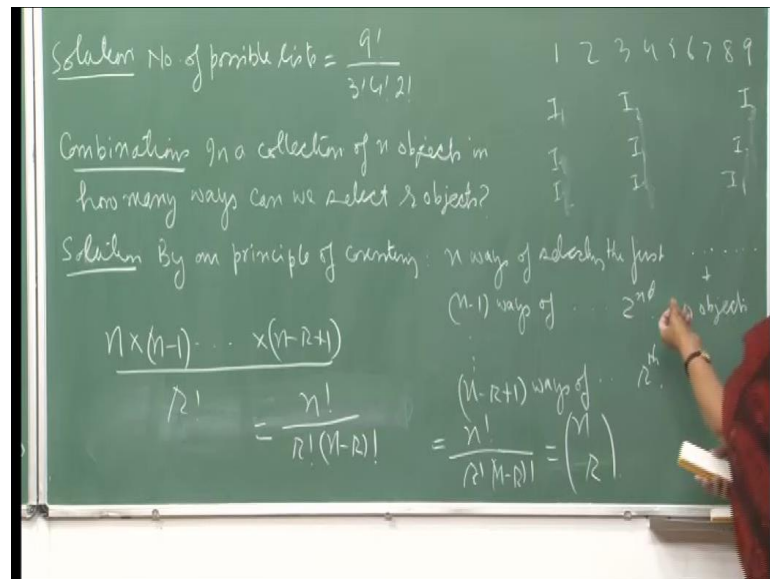 Solution No. of possible lists = 9! / 3! 4! 2!
1 2 3 4 5 6 7 8 9
I₁ I₁ I
I₁ I I₁
I I I₁
Combinations In a collection of n objects in
how many ways can we select r objects?
Solution By our principle of counting: n ways of selecting the first ......
(n-1) ways of .... 2nd objects
⋮
(n-R+1) ways of .. Rth.
n×(n-1)... ... ×(n-R+1) / R!
= n! / R!(n-R)!
= n! / R!(n-R)! = (n R)